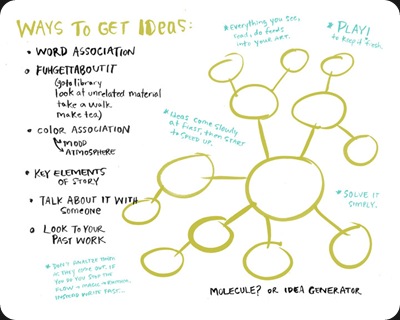 WAYS TO GET IDEAS:
• WORD ASSOCIATION
• FUHGETTABOUTIT
(go to library
look at unrelated material
take a walk.
make tea)
• COLOR ASSOCIATION
MOOD
ATMOSPHERE
• KEY ELEMENTS
OF STORY
• TALK ABOUT IT WITH
SOMEONE
• LOOK TO YOUR
PAST WORK
* DON'T
THEM
AS THEY COME OUT. IF
YOU DO YOU STOP THE
FLOW
INSTEAD WRITE FAST...
* Everything you see,
read, do feeds
into your ART.
* PLAY!
to keep it fresh.
* Ideas come slowly
at first, then start
to speed up.
* SOLVE IT
SIMPLY.
MOLECULE? OR IDEA GENERATOR